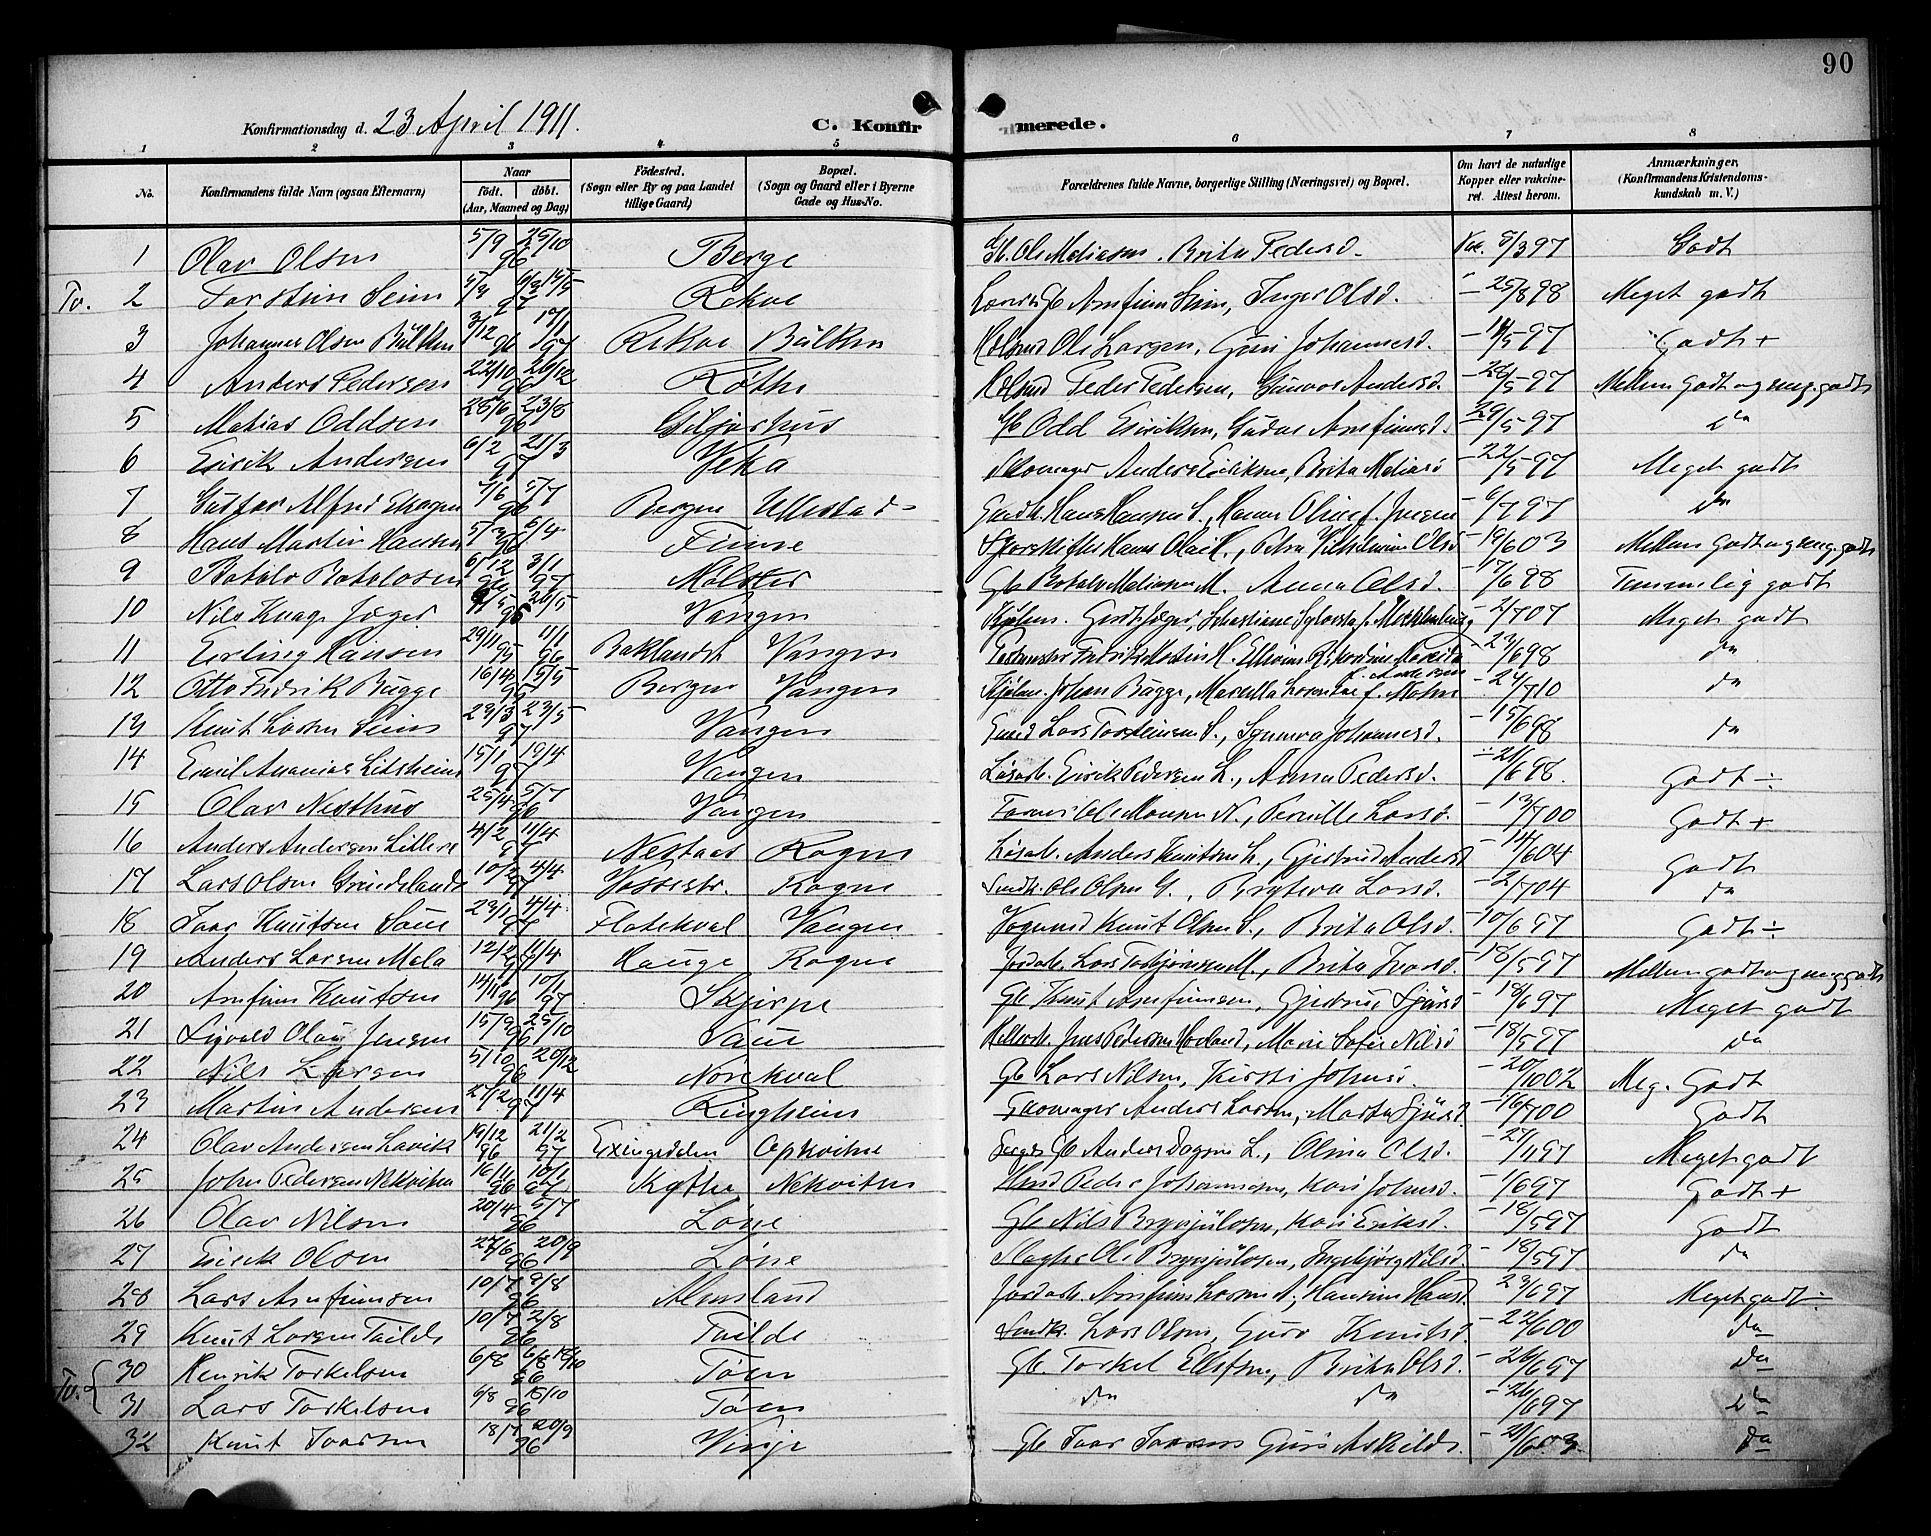 90
Konfirmationsdag d. 23 April 1911. C. Konfirmerede.
1 2 3 4 5 6 7 8
No. Konfirmandens fulde Navn (ogsaa Efternavn) Naar født. døbt. (Aar, Maaned og Dag) Fødested. (Sogn eller By og paa Landet tillige Gaard) Bopæl. (Sogn og Gaard eller i Byerne Gade og Hus-No. Forældrenes fulde Navne, borgerlige Stilling (Næringsvei) og Bopæl. Om havt de naturlige Kopper eller vakcineret. Attest herom. Anmærkninger. (Konfirmandens Kristendomskundskab m. V.)
1 Olav Olsen 5/9 25/10 96 Berge Ole Matiasen. Brita Pedersd. Vac. 8/3 97 Godt
Tv. 2 Torstein Seim 97 Rekve Gb Arnfinn Seim, Inger Olsd. – 25/8 98 Meget godt
3 Johannes Olsen Bulken 3/12 96 17/1 97 Rekve Bulken Ole Larsen, Guri Johannesd. – 14/5 97 Godt +
4 Anders Pedersen 22/10 20/12 96 Røthe Peder Pedersen, Gunvor Andersd. – 22/5 97 Mellem godt og meg. godt
5 Matias Oddsen 28/6 23/8 96 Giljarhus Gb Odd Eirikson, Arnfinnsd. – 29/5 97 do
6 Eirik Andersen 6/2 21/3 97 Skomager Anders Eiriksen, Brita Matiasd – 22/5 97 Meget godt
7 Gustav Alfred 7/6 5/7 96 Bergen Ullestad – Hans Hansen S., Hanna Oline f. Jensen – 6/7 97 do
8 Hans Martin Hansen 5/3 6/4 96 Finse Hans Olai H., Petra Vilhelmine Olsd – 19/6 03 Mellem godt og meg. godt
9 Botolv Botolvsen 6/12 96 3/1 97 Mølster Gb Botolv Matiassen M. Anna Olsd. – 17/6 98 Temmelig godt
10 Nils Knag Jæger 20/5 96 Vangen Gerdt Jæger, f. Mecklenburg – 2/7 07 Meget godt
11 Erling Hansen 29/11 95 11/1 96 Baklandet Vangen – 23/6 98 do
12 Otto Fredrik Bugge 16/4 15/5 95 Bergen Vangen Johan Bugge, f. Mohn – 24/7 10 do
13 Knut Larsen Seim 29/3 23/5 97 Vangen Lars Torsteinsen S., Synneva Johannesd. – 15/6 98 do
14 Emil Ananias Litsheim 15/1 19/4 97 Vangen Løsarb. Eirik Pedersen L., Anna Pedersd. – 21/6 98. Godt ÷
15 Olav Nesthus 25/4 5/7 96 Vangen Ole Monsen N., Pernille Larsd. – 13/7 00 Godt +
16 Anders Andersen Lillere 4/2 11/4 97 Nestaas Rogne Løsarb. Anders Knutsen L., Gjertrud Andersd – 14/6 04 Godt
17 Lars Olsen 10/2 4/4 97 Vossestr. Rogne Ole Olsen G., Larsd. – 2/7 04 do
18 Ivar Knutson Saue 23/1 4/4 97 Flatekval Vangen Knut Olsen S., Brita Olsd. – 10/6 97 Godt ÷
19 Anders Larsen Mala 12/2 11/4 97 Hauge Rogne Jordarb. Lars Torbjørnsen M., Brita Ivarsd. – 18/5 97 Mellem godt og meg godt
20 Arnfinn Knutson 14/11 96 10/1 97 Skjerpe Gb Knut Arnfinnsen, Gjertrud Sjursd – 18/6 97 Meget godt
21 Sigvald Olai Jensen 15/9 25/10 96 Saue Jens Pedersen Hovland, Marie Sofie Nilsd – 18/5 97 do
22 Nils Larsen 5/10 20/12 96 Norekval Gb Lars Nilsen, Kirsti Johnsd. – 20/10 02 Meg. Godt
23 Martin Andersen 27/2 11/4 97 Ringheim Skomager Anders Larsen, Marta Sjursd. – 16/7 00 Godt
24 Olav Andersen Lavik 19/12 96 21/2 97 Exingedalen Opkvitne Gb Anders L., Olina Olsd. – 27/11 97 Meget godt
25 John Pedersen Nekvitne 16/11 96 10/1 97 Kythe Nekvitne Peder Johannesen, Kari Johnsd. – 1/6 97 Godt +
26 Olav Nilsen 20/4 5/7 96 Løne Gb Nils Brynjulvsen, Kari Eriksd. – 18/5 97 Godt
27 Eirik Olsen 27/6 20/9 96 Løne Ole Brynjulvsen, Ingebjørg Nilsd. – 18/5 97 do
28 Lars Arnfinnsen 10/7 9/8 96 Afmsland Jordarb. Arnfinn Larsen A., – 23/6 97 Meget godt ÷
29 Knut Larsen Tvilde 10/7 2/8 96 Tvilde Lars Olsen, Guro Knutsd. – 22/6 00 do
Tv. { 30 Henrik Torkelsen 6/8 18/10 96 Tøen Gb Torkel Ellefsen, Brita Olsd. – 26/6 97 do
31 Lars Torkelsen 6/8 18/10 96 Tøen do do – 26/6 97 do
32 Knut Ivarsen 18/7 20/9 96 Vinje Gb Ivar Ivarsen Guri Askildsd. do